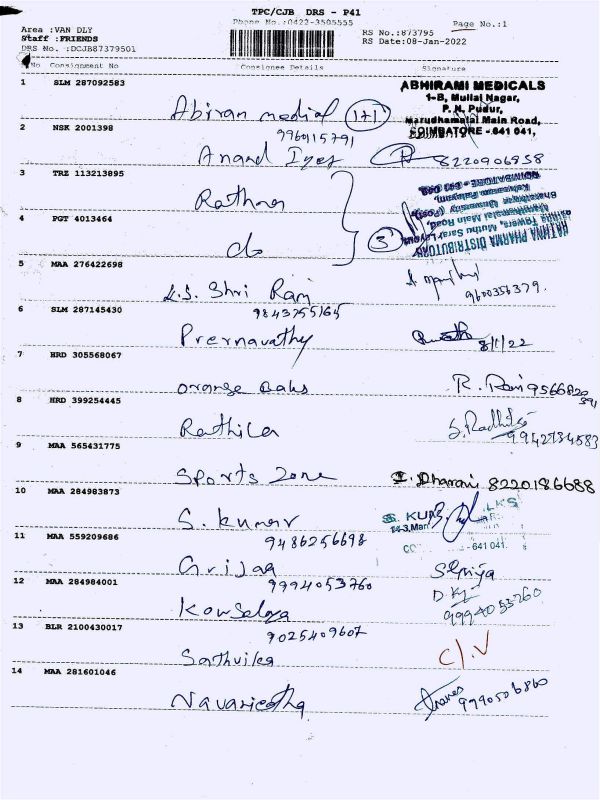 TPC/CJB DRS - P41
Phone No.:0422-3505555
Page No.:1
Area :VAN DLY
Staff :FRIENDS
DRS No. :DCJB87379501
RS No.:873795
RS Date:08-Jan-2022
No Consignment No Consignee Details Signature
1 SLM 287092583
Abiram medical 1+1
ABHIRAMI MEDICALS
1-B, Mullai Nagar,
P. N. Pudur,
Marudhamalai Main Road,
COIMBATORE - 641 041,
2 NSK 2001398
9960115791
Anand Iyer 8220906958
3 TRZ 113213895
Rathna
RATHNA PHARMA DISTRIBUTORS
Towers, Muthu Saray Layout,
Marudhamalai Main Road,
Bharathiar University (Post),
COIMBATORE - 641 046.
4 PGT 4013464
do 3
5 MAA 276422698
K.S. Shri Ram
9600356379.
6 SLM 287145430
9843755165
Premavathy
8/1/22
7 HRD 305568067
orange
R. Ravi 9566820
391
8 HRD 399254445
Rathika
S. Radhika
9942734583
9 MAA 565431775
Sports Zone I. Dharani 8220186688
10 MAA 284983873
S. kumar
S. KUM
-641 041.
11 MAA 559209686
9486256698
Grijaa
12 MAA 284984001
9994053760
Kowsalya
9994053760
13 BLR 2100430017
9025409607
Sathvika C/.V
14 MAA 281601046
Navaneetha
9790506860